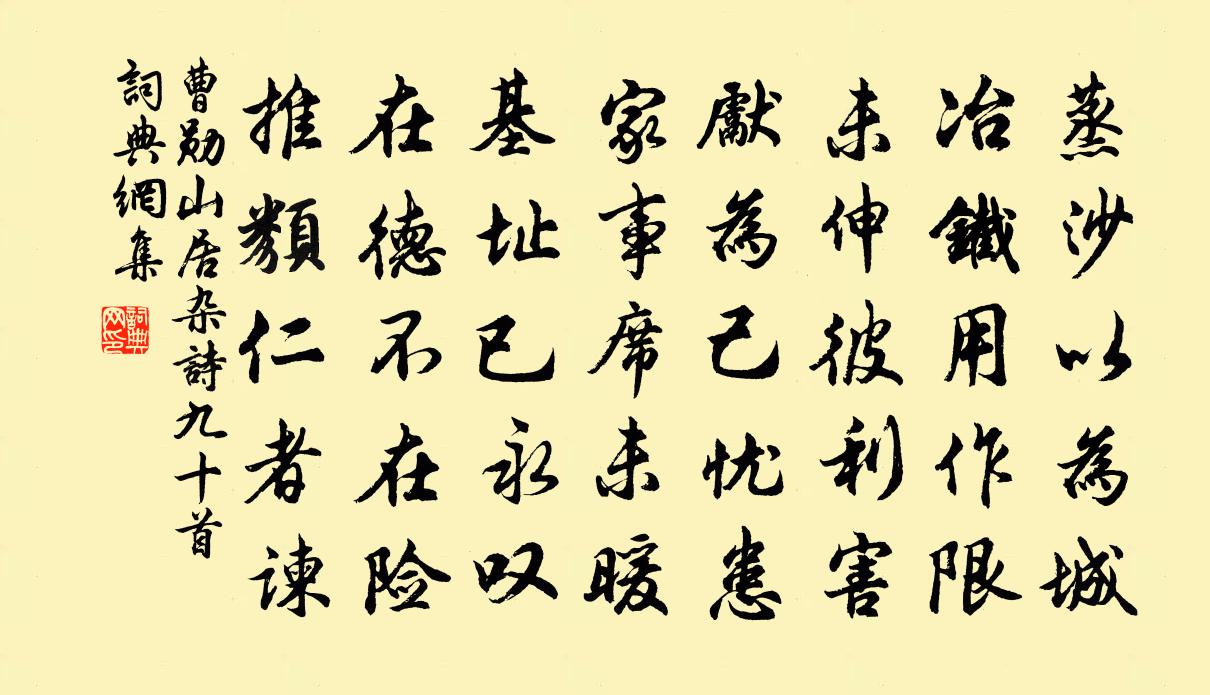 蒸沙以為城
冶鐵用作限
未伸彼利害
獻為己忧患
家事席未暖
基址已永叹
在德不在险
推類仁者谏
曹勋山居杂詩九十首
詞典網集
詞典网印